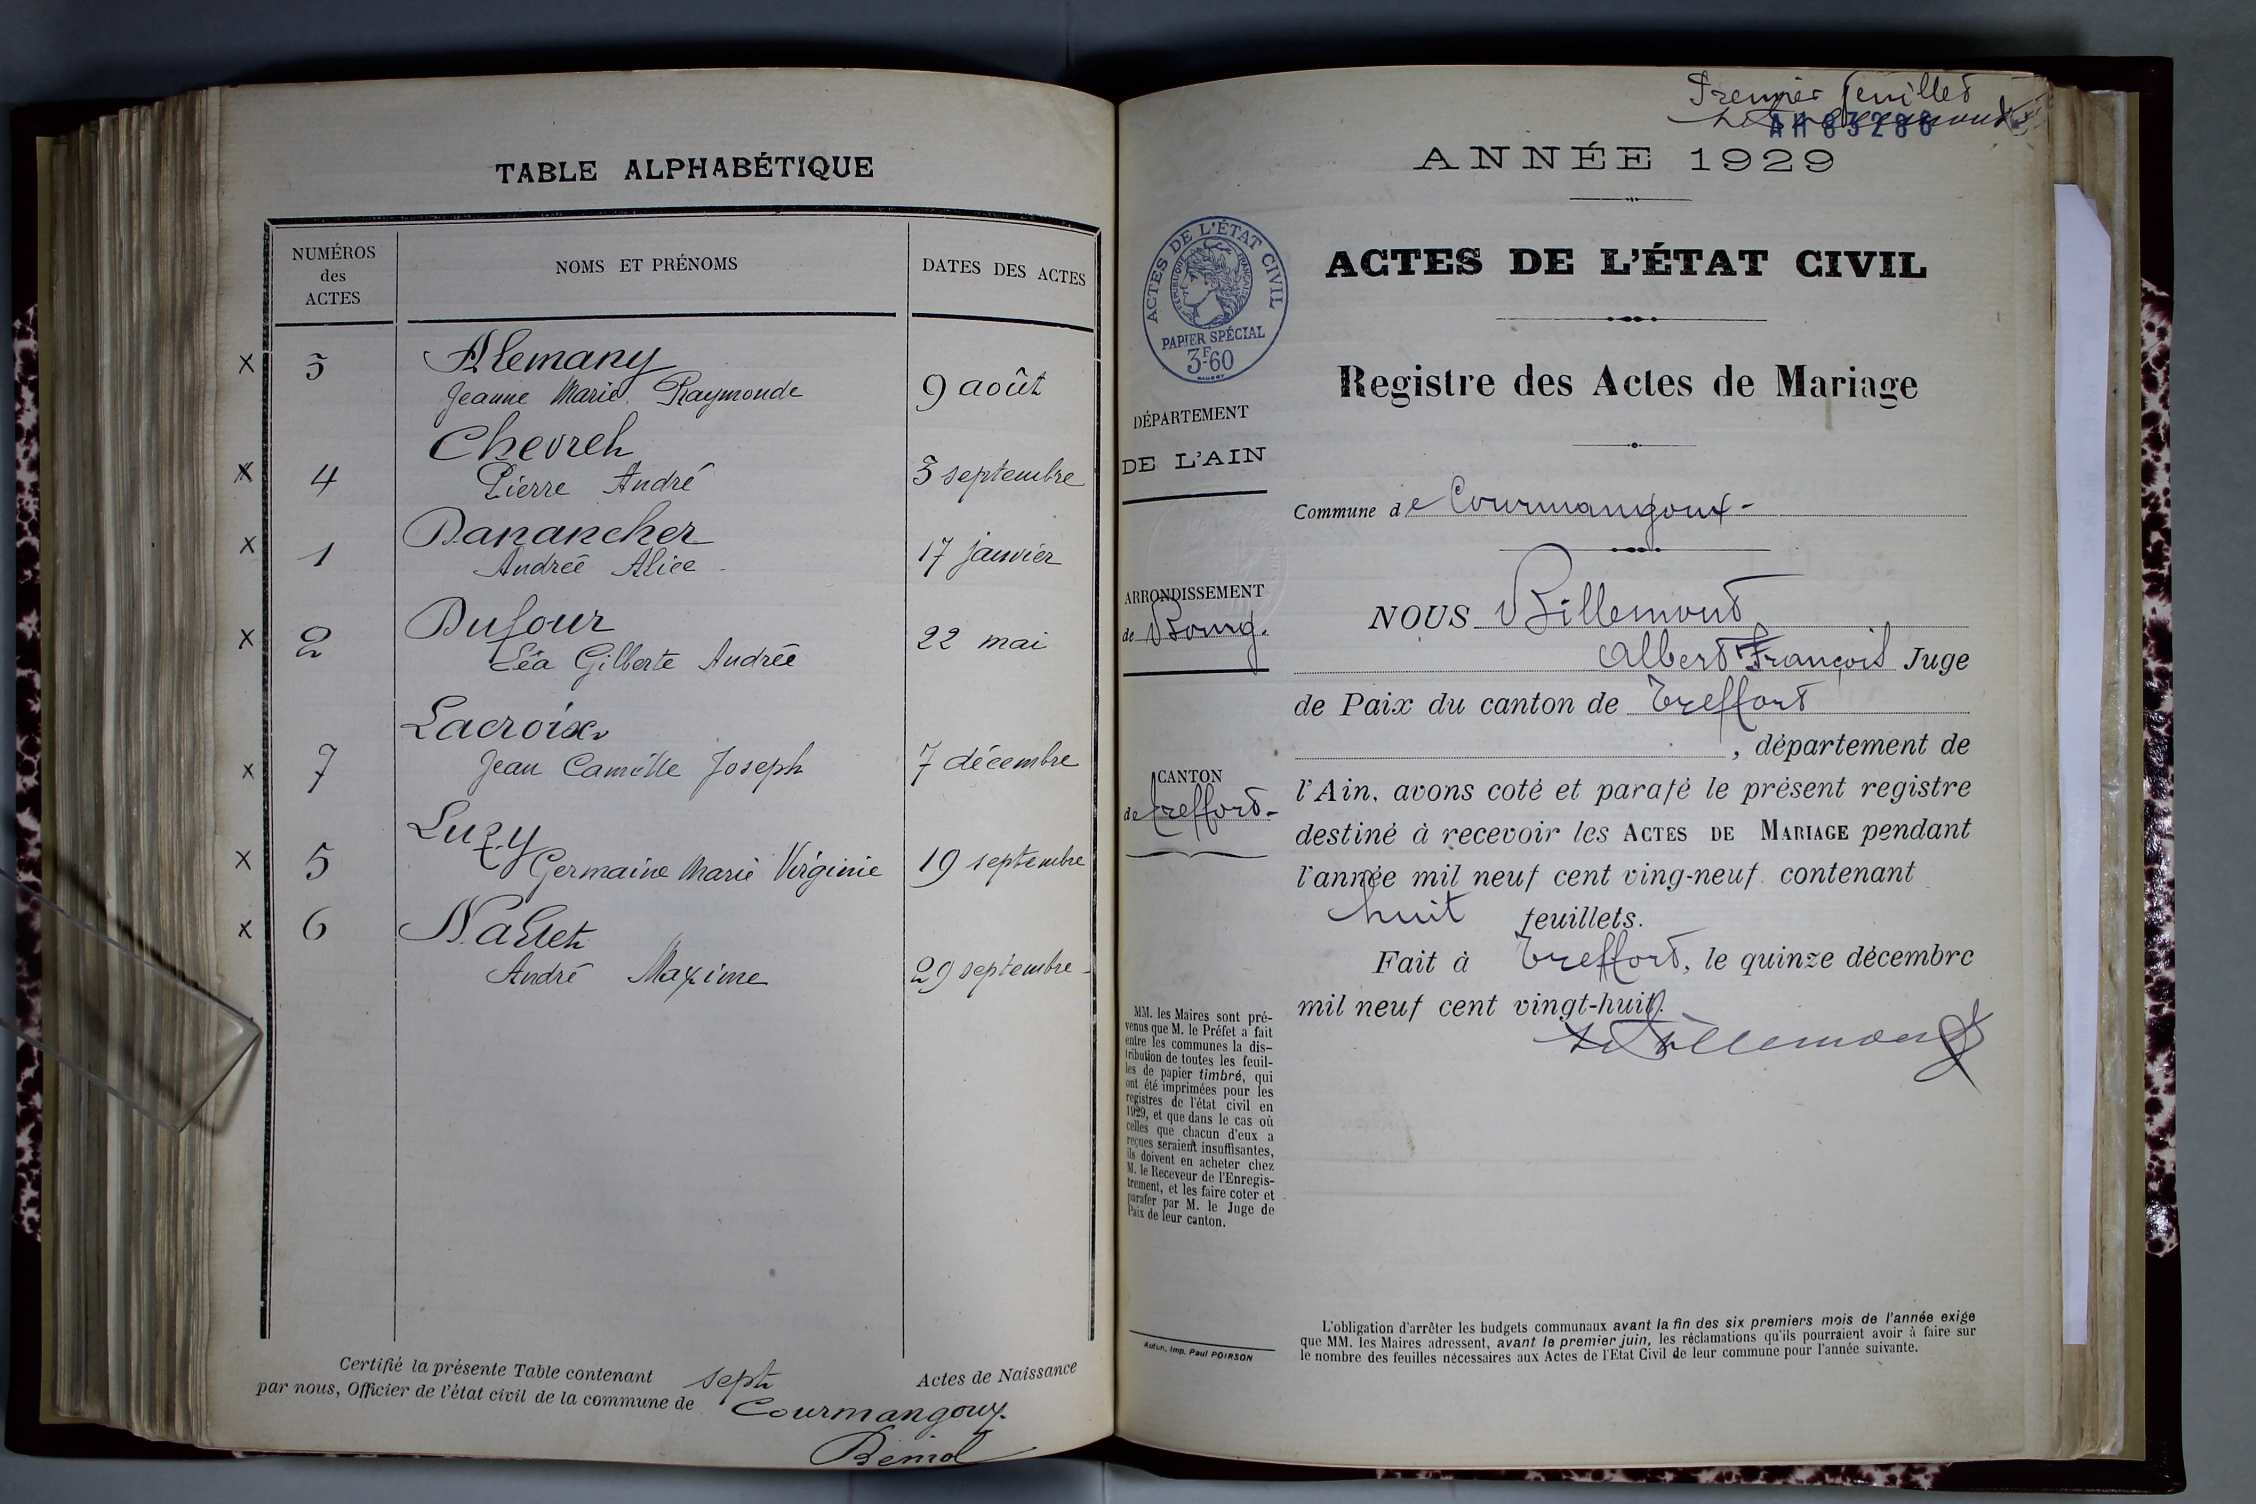 TABLE ALPHABÉTIQUE
NUMÉROS
des
ACTES
NOMS ET PRÉNOMS
DATES DES ACTES
x 3 Alemany
Jeanne Marie Raymonde 9 août
Chevrel
x 4 Pierre André 3 septembre
Danancher
x 1 Andrée Alice 17 janvier
Dufour
x 2 Léa Gilberte Andrée 22 mai
Lacroix
x 7 Jean Camille Joseph 7 décembre
Luzy
x 5 Germaine Marie Virginie 19 septembre
x 6
André Maxime 29 septembre
Certifié la présente Table contenant sept Actes de Naissance
par nous, Officier de l'état civil de la commune de Courmangoux.
Premier feuillet
ANNÉE 1929
ACTES DE L'ÉTAT CIVIL
RÉPUBLIQUE FRANÇAISE
PAPIER SPÉCIAL
3F60
ACTES DE L'ÉTAT CIVIL
Registre des Actes de Mariage
DÉPARTEMENT
DE L'AIN
Commune de Courmangoux-
ARRONDISSEMENT
de Bourg.
CANTON
de Treffort-
NOUS Billemont
Albert François Juge
de Paix du canton de Treffort
, département de
l'Ain, avons coté et parafé le présent registre
destiné à recevoir les ACTES DE MARIAGE pendant
l'année mil neuf cent ving-neuf contenant
huit feuillets.
Fait à Treffort, le quinze décembre
mil neuf cent vingt-huit.
Billemont
MM. les Maires sont pré-
venus que M. le Préfet a fait
entre les communes la dis-
tribution de toutes les feuil-
les de papier timbré, qui
ont été imprimées pour les
registres de l'état civil en
1929, et que dans le cas où
celles que chacun d'eux a
reçues seraient insuffisantes,
ils doivent en acheter chez
M. le Receveur de l'Enregis-
trement, et les faire coter et
parafer par M. le Juge de
Paix de leur canton.
Autun, Imp. Paul POIRSON
L'obligation d'arrêter les budgets communaux avant la fin des six premiers mois de l'année exige
que MM. les Maires adressent, avant le premier juin, les réclamations qu'ils pourraient avoir à faire sur
le nombre des feuilles nécessaires aux Actes de l'Etat Civil de leur commune pour l'année suivante.